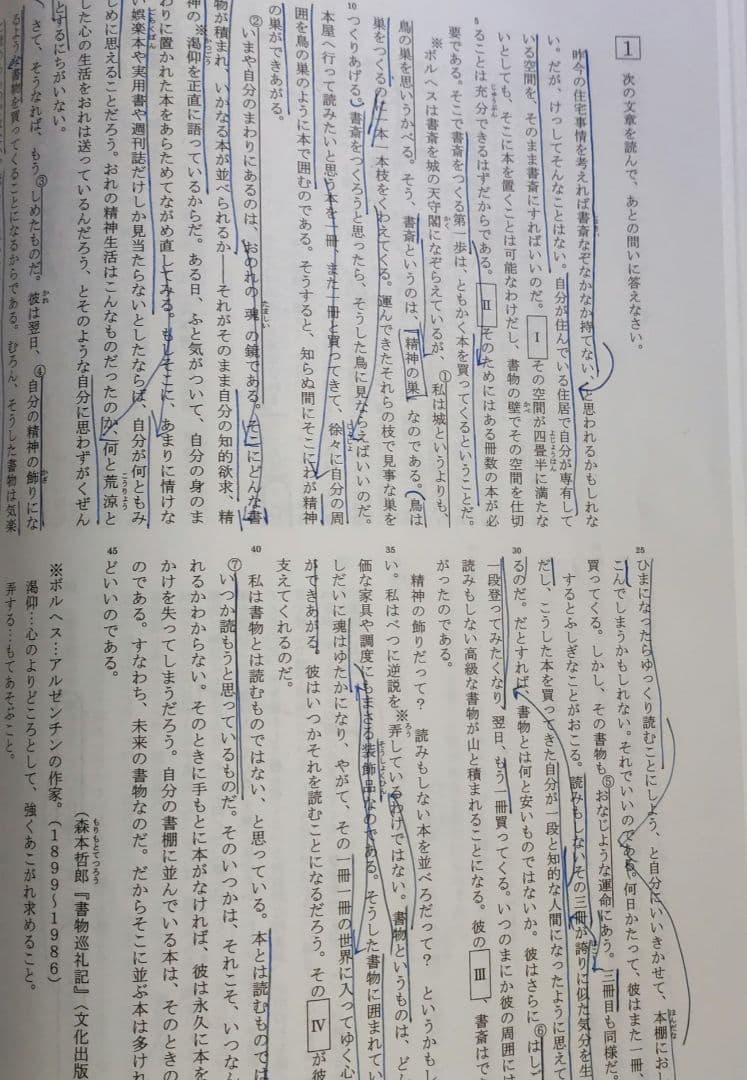 1 次の文章を読んで、あとの問いに答えなさい。
昨今の住宅事情を考えれば書斎なぞなかなか持てない、と思われるかもしれな
い。だが、けっしてそんなことはない。自分が住んでいる住居で自分が専有して
いる空間を、そのまま書斎にすればいいのだ。 Ⅰ その空間が四畳半に満たな
いとしても、そこに本を置くことは可能なわけだし、書物の壁でその空間を仕切
5 ることは充分できるはずだからである。 Ⅱ そのためにはある冊数の本が必
要である。そこで書斎をつくる第一歩は、ともかく本を買ってくるということだ。
※ボルヘスは書斎を城の天守閣になぞらえているが、①私は城というよりも、
鳥の巣を思いうかべる。そう、書斎というのは、「精神の巣」なのである。鳥は
巣をつくるのに一本一本枝をくわえてくる。運んできたそれらの枝で見事な巣を
10 つくりあげる。書斎をつくろうと思ったら、そうした鳥に見ならえばいいのだ。
本屋へ行って読みたいと思う本を一冊、また一冊と買ってきて、徐々に自分の周
囲を鳥の巣のように本で囲むのである。そうすると、知らぬ間にそこにわが精神
の巣ができあがる。
②いまや自分のまわりにあるのは、おのれの魂の鏡である。そこにどんな書
物が積まれ、いかなる本が並べられるか――それがそのまま自分の知的欲求、精
神の※渇仰を正直に語っているからだ。ある日、ふと気がついて、自分の身のま
わりに置かれた本をあらためてながめ直してみる。もしそこに、あまりに情けな
い娯楽本や実用書や週刊誌だけしか見当たらないとしたならば、自分が何ともみ
じめに思えることだろう。おれの精神生活はこんなものだったのか、何と荒涼と
した心の生活をおれは送っているんだろう、とそのような自分に思わずがくぜん
とするにちがいない。
さて、そうなれば、もう③しめたものだ。彼は翌日、④自分の精神の飾りにな
るような書物を買ってくることになるからである。むろん、そうした書物は気楽
25 ひまになったらゆっくり読むことにしよう、と自分にいいきかせて、本棚におし
こんでしまうかもしれない。それでいいのである。何日かたって、彼はまた一冊、
買ってくる。しかし、その書物も⑤おなじような運命にあう。三冊目も同様だ。
するとふしぎなことがおこる。読みもしないその三冊が誇りに似た気分を生
だし、こうした本を買ってきた自分が一段と知的な人間になったように思えて
30 るのだ。だとすれば、書物とは何と安いものではないか。彼はさらに⑥はしご
一段登ってみたくなり、翌日、もう一冊買ってくる。いつのまにか彼の周囲には
読みもしない高級な書物が山と積まれることになる。彼の Ⅲ 、書斎はでき
がったのである。
精神の飾りだって? 読みもしない本を並べろだって? というかもし
35 い。私はべつに逆説を※弄しているわけではない。書物というものは、どん
価な家具や調度にもまさる装飾品なのである。そうした書物に囲まれてい
しだいに魂はゆたかになり、やがて、その一冊一冊の世界に入ってゆく心
ができあがる。彼はいつかそれを読むことになるだろう。その Ⅳ が彼
支えてくれるのだ。
40 私は書物とは読むものではない、と思っている。本とは読むものでは
⑦いつか読もうと思っているものだ。そのいつかは、それこそ、いつなん
れるかわからない。そのときに手もとに本がなければ、彼は永久に本を
かけを失ってしまうだろう。自分の書棚に並んでいる本は、そのときの
のである。すなわち、未来の書物なのだ。だからそこに並ぶ本は多けれ
45 どいいのである。
(森本哲郎『書物巡礼記』(文化出版
※ボルヘス…アルゼンチンの作家。(1899〜1986)
渇仰…心のよりどころとして、強くあこがれ求めること。
弄する…もてあそぶこと。